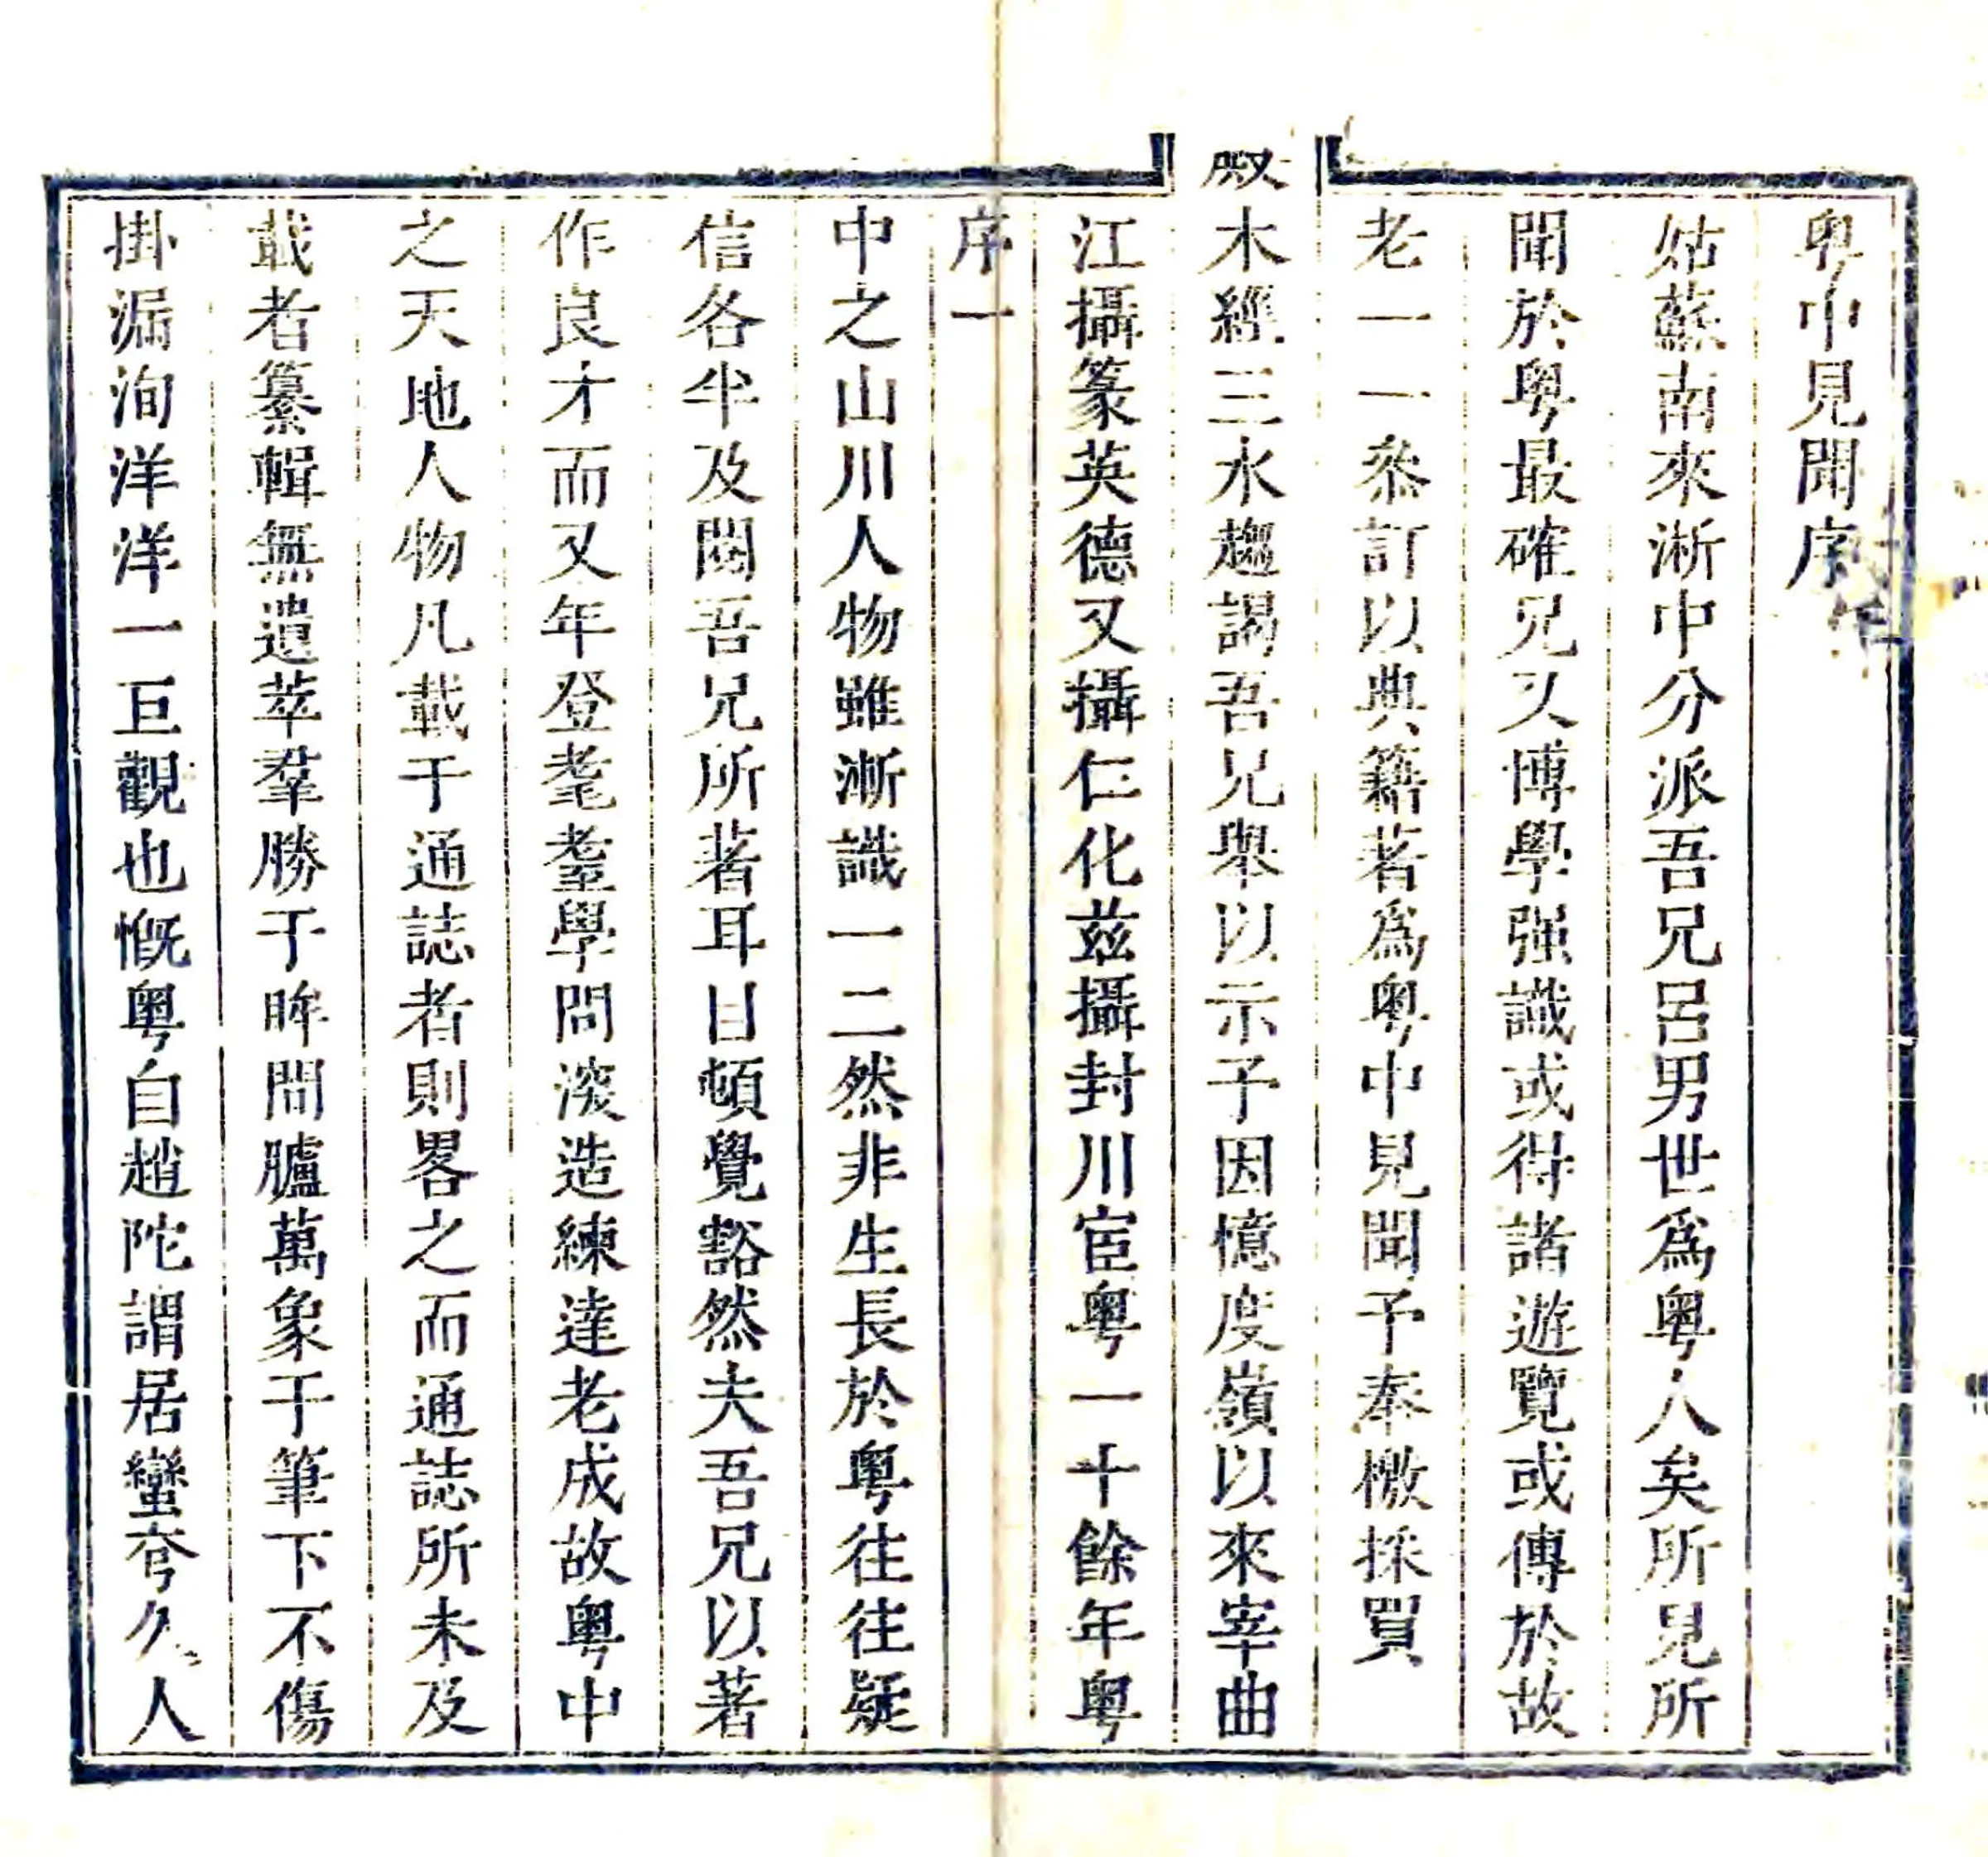 粤中見聞序
姑蘇南來淅中分派吾兄呂男世爲粤人矣所見所
聞於粤最確兄又博學强識或得諸遊覽或傳於故
老一一叅訂以典籍著爲粤中見聞予奉檄採買
殿木經三水趨謁吾兄舉以示予因憶度嶺以來宰曲
江攝篆英德又攝仁化茲攝封川宦粤一十餘年粤
序一
中之山川人物雖漸識一二然非生長於粤往往疑
信各半及閱吾兄所著耳目頓覺豁然夫吾兄以著
作良才而又年登耄耋學問淡造練達老成故粤中
之天地人物凡載于通誌者則畧之而通誌所未及
載者纂輯無遺萃羣勝于眸間臚萬象于筆下不傷
掛漏洵洋洋一巨觀也慨粤自趙陀謂居蠻夸久人